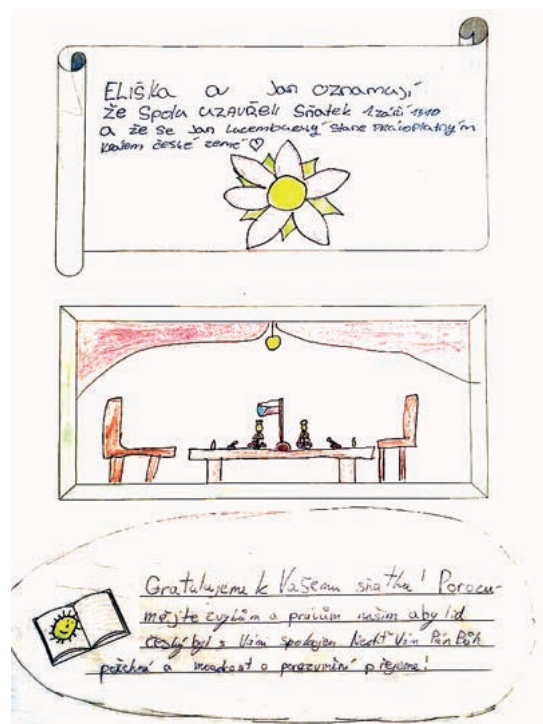 ELiška a Jan oznamují
že Spolu UZAVŘELi Sňatek 1. září 1310
a že se Jan Lucemburský stane právoplatným
Králem české země ♡
Gratulujeme k Vašemu sňatku! Porozu-
mějte zvykům a právům našim aby lid
český byl s Vámi spokojen Nechť Vám Pán Bůh
požehná a moudrost a porozumění přejeme!